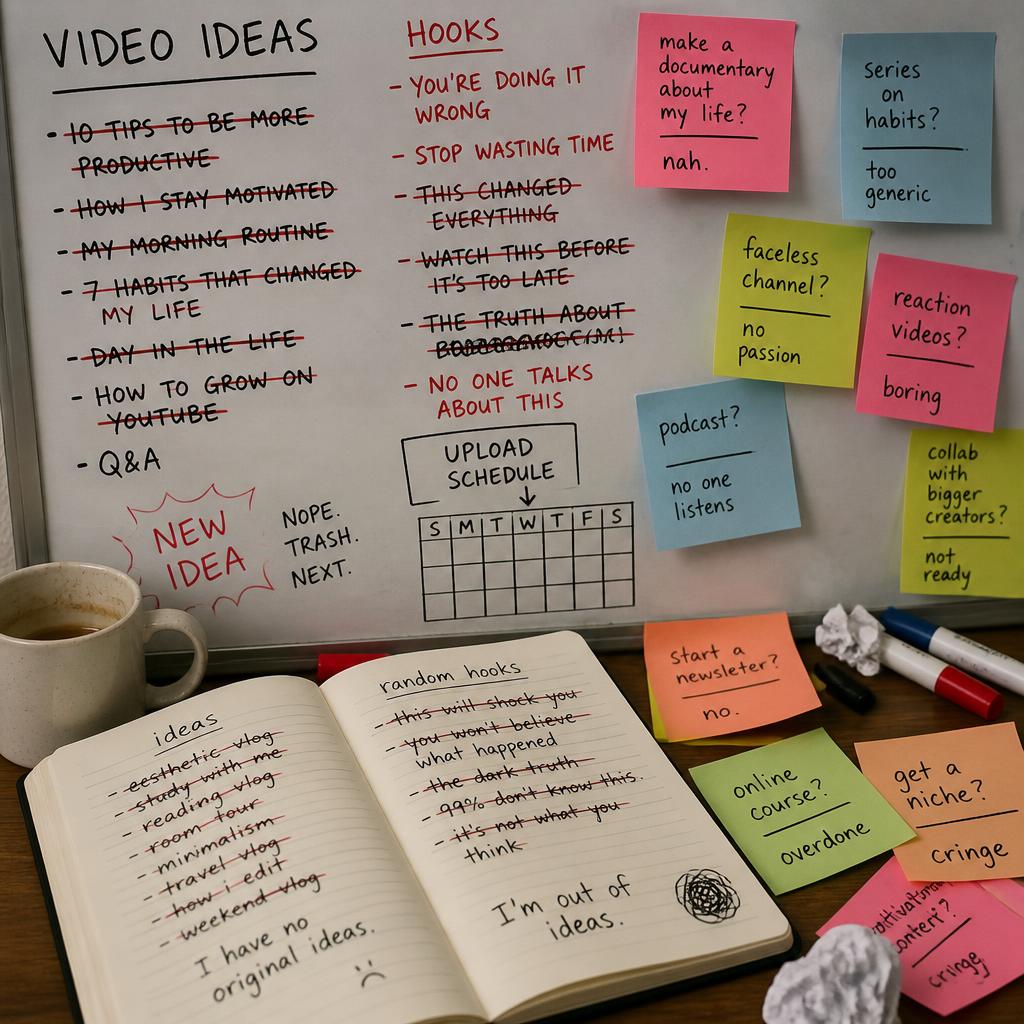 VIDEO IDEAS
- 10 TIPS TO BE MORE
PRODUCTIVE
- HOW I STAY MOTIVATED
- MY MORNING ROUTINE
- 7 HABITS THAT CHANGED
MY LIFE
- DAY IN THE LIFE
- HOW TO GROW ON
YOUTUBE
- Q&A
NEW
IDEA
NOPE.
TRASH.
NEXT.
HOOKS
- YOU'RE DOING IT
WRONG
- STOP WASTING TIME
- THIS CHANGED
EVERYTHING
- WATCH THIS BEFORE
IT'S TOO LATE
- THE TRUTH ABOUT
- NO ONE TALKS
ABOUT THIS
UPLOAD
SCHEDULE
S M T W T F S
make a
documentary
about
my life?
nah.
series
on
habits?
too
generic
faceless
channel?
no
passion
reaction
videos?
boring
podcast?
no one
listens
collab
with
bigger
creators?
not
ready
start a
newsleter?
no.
online
course?
overdone
get a
niche?
cringe
ideas
- eesthetic vlog
- study with me
- reading vlog
- room tour
- minimalism
- travel vlog
- how i edit
- weekend vlog
I have no
original ideas.
random hooks
- this will shock you
- you won't believe
what happened
- the dark truth
- 99% don't know this.
- it's not what you
think
I'm out of
ideas.